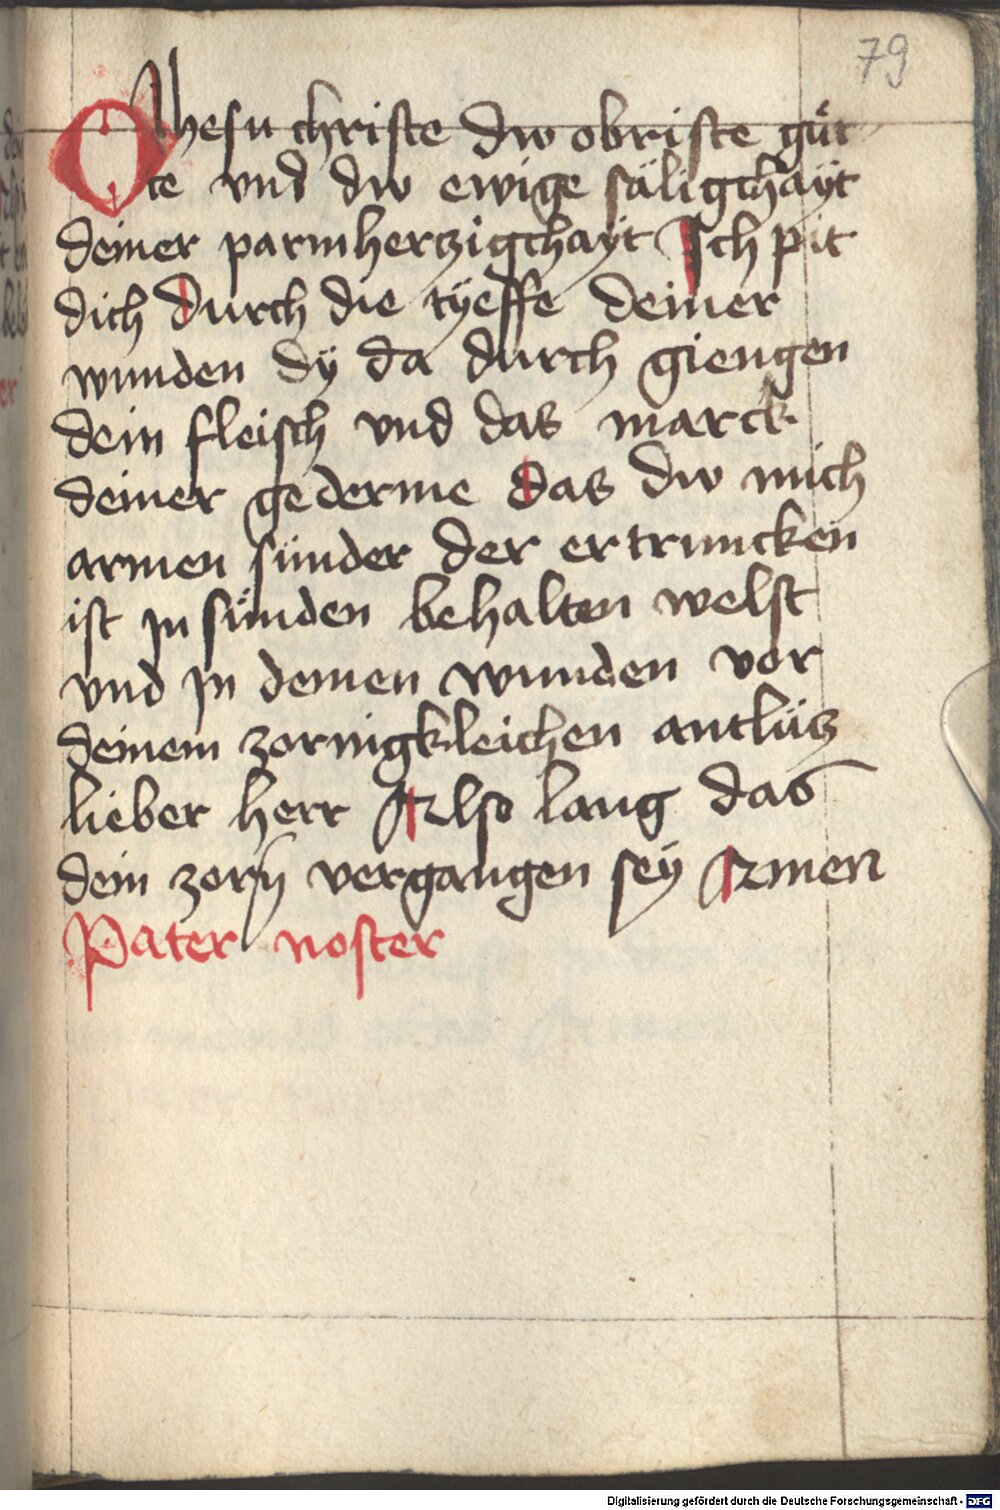 79
O Jhesu christe dw obriste güt
te vnd dw ewige säligchayt
deiner parmherczigchayt Ich pit
dich durch die tÿeffe deiner
wunden dÿ da durch giengen
dein fleisch vnd das marck
deiner gederme das dw mich
armen sünder der ertruncken
ist jn sünden behalten welst
vnd jn deinen wunden vor
deinem zornigkleichen antlücz
lieber herr Also lang das
dein zorñ vergangen seÿ Amen
Pater noster
Digitalisierung gefördert durch die Deutsche Forschungsgemeinschaft - DFG